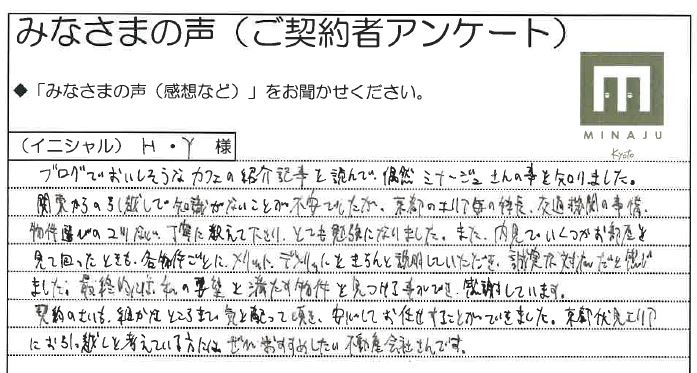 みなさまの声（ご契約者アンケート）
◆「みなさまの声（感想など）」をお聞かせください。
MINAJU
Kyoto
（イニシャル） H ・ Y 様
ブログでおいしそうなカフェの紹介記事を読んで、偶然ミナージュさんの事を知りました。
関東からの引越しで知識がないことが不安でしたが、京都のエリア毎の特長、交通機関の事情、
物件選びのコツなど、丁寧に教えて下さり、とても勉強になりました。また、内見でいくつかお部屋を
見て回ったときも、各物件ごとに、メリット、デメリットをきちんと説明していただき、誠実な対応だと感じ
ました。最終的には私の要望を満たす物件を見つける事ができ、感謝しています。
契約の も、細かなところまで気を配って頂き、安心してお任せすることができました。京都伏見エリア
にお引越しを考えている方には、ぜひおすすめしたい不動産会社さんです。